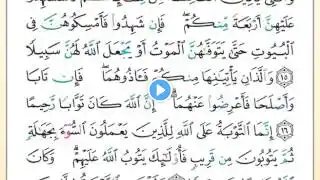 عَلَيْهِنَّ أَرْبَعَةً مِّنكُمْ ۖ فَإِن شَهِدُوا۟ فَأَمْسِكُوهُنَّ فِى
ٱلْبُيُوتِ حَتَّىٰ يَتَوَفَّىٰهُنَّ ٱلْمَوْتُ أَوْ يَجْعَلَ ٱللَّهُ لَهُنَّ سَبِيلًا
﴿١٥﴾ وَٱلَّذَانِ يَأْتِيَٰنِهَا مِنكُمْ فَـَٔاذُوهُمَا ۖ فَإِن تَابَا
وَأَصْلَحَا فَأَعْرِضُوا۟ عَنْهُمَآ ۗ إِنَّ ٱللَّهَ كَانَ تَوَّابًا رَّحِيمًا
﴿١٦﴾ إِنَّمَا ٱلتَّوْبَةُ عَلَى ٱللَّهِ لِلَّذِينَ يَعْمَلُونَ ٱلسُّوٓءَ بِجَهَٰلَةٍ
ثُمَّ يَتُوبُونَ مِن قَرِيبٍ فَأُو۟لَٰٓئِكَ يَتُوبُ ٱللَّهُ عَلَيْهِمْ ۗ وَكَانَ